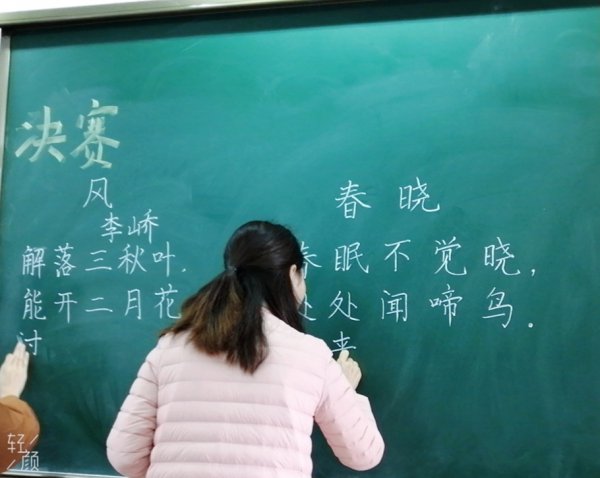 决赛
风
李峤
解落三秋叶,
能开二月花
过
春晓
春眠不觉晓,
处处闻啼鸟。
来
轻颜